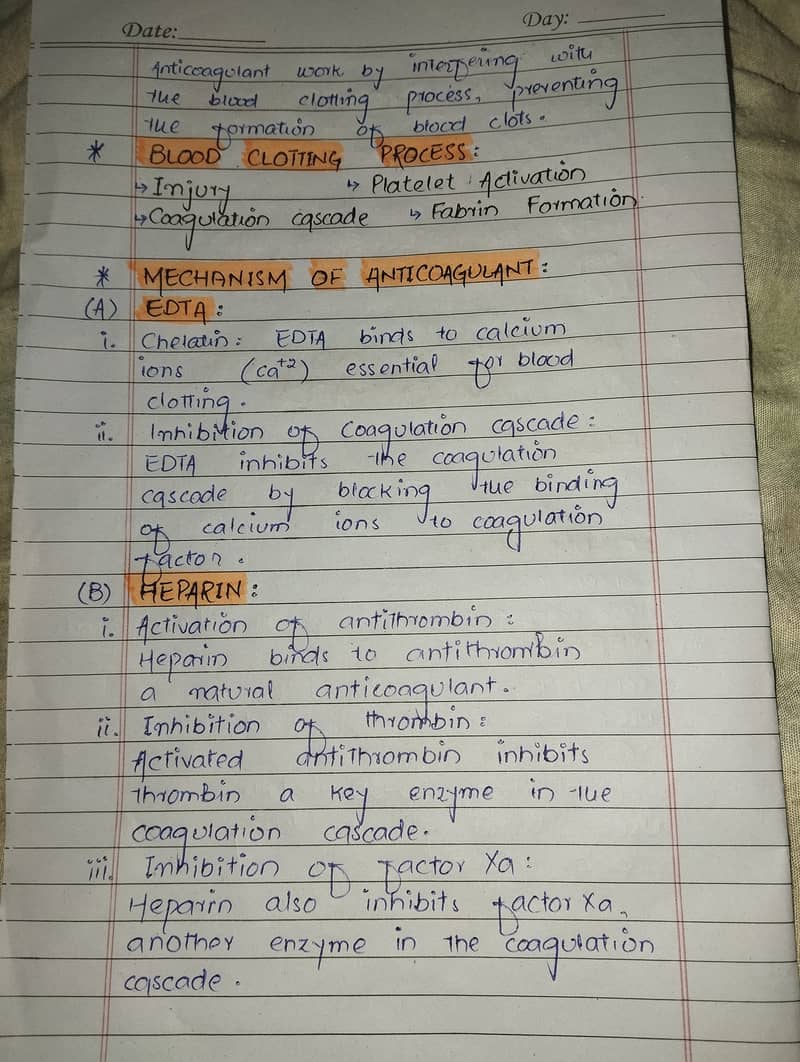 Date: Day:
Anticoagulant work by interfering with
the blood clotting process, preventing
the formation of blood clots.
* BLOOD CLOTTING PROCESS:
↳ Injury ↳ Platelet Activation
↳ Coagulation cascade ↳ Fabrin Formation
* MECHANISM OF ANTICOAGULANT:
(A) EDTA:
i. Chelatin: EDTA binds to calcium
ions (ca+2) essential for blood
clotting.
ii. Inhibition of Coagulation cascade:
EDTA inhibits the coagulation
cascade by blocking the binding
of calcium ions to coagulation
factor.
(B) HEPARIN:
i. Activation of antithrombin:
Heparin binds to antithrombin
a natural anticoagulant.
ii. Inhibition of thrombin:
Activated antithrombin inhibits
thrombin a key enzyme in the
coagulation cascade.
iii. Inhibition of factor Xa:
Heparin also inhibits factor Xa,
another enzyme in the coagulation
cascade.